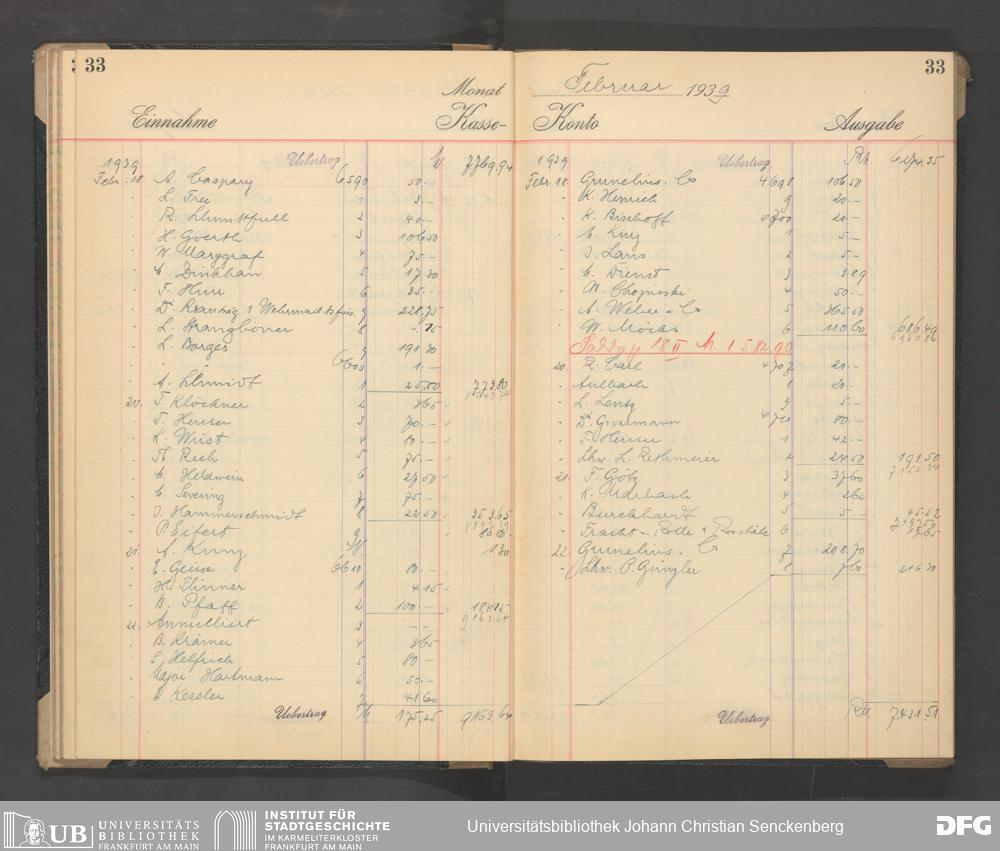 33
Monat
Einnahme Kasse-
1939 Uebertrag M 7769.94
Febr. 18. A. Caspary 6590 50.-
L. Frei 1 3.-
R. Schmittfull 2 40.-
H. Goerth 3 106 50
W. Marggraf 4 75.-
Dinkhan 5 17 30
F. Huu 6 35.-
228,75
L. Strangböner 8 -.75
L. Borges 9 191 30
" 6600 1.-
A. Schmidt 1 25 80 773,80
20. F. Klöckner 2 3 65
F. Heuser 3 70.-
K. Wüst 4 80.-
Th. Reeh 5 75.-
Heldwein 6 27 50
Severing 7 75.-
J. Hammerschmidt 8 22 50 353,65
P. Eifert 9
21. A. Kung 1 30
E. Geisse 6610 80.-
H. Flinner 1 4 15
B. Pfaff 2 100.-
22. Annulliert 3 - -
B. Krämer 4 3 65
S. Helfrich 5 80 -
Major Hartmann 6 50.-
E. Kessler 7 41 60
Uebertrag 175,25 9163,64
33
Februar 1939
Konto Ausgabe
1939 Uebertrag RM. 6274.35
Febr. 18. Grunelius. Co 4698 106 50
K. Henrich 9 20.-
K. Bischoff 4700 20.-
Kurz 1 5.-
J. Lans 2 5.-
Dienst 3 3 89
4 50.-
A. Weber Co 5 365 50
W. Möcks 6 110 60 686.49
6960 84
Saldo p. 18 II M. 1 582.90
20. R. Carl 4707 20.-
Aulbach 8 20.-
L. Lentz 9 5.-
Dr. Grossmann 4710 80.-
F. Heuser 1 42.-
Schw. L. Rethmeier 2 24 50 191.50
7152 34
21. F. Götz 3 37 60
K. Marbach 4 2 62
Burckhardt 5 5.- 45.22
Fracht - Rolle 6 17,65
22. Grunelius. Co 7 208.70
Schw. P. Gingler 8 7 60 216 30
Uebertrag RM 7431.51
UB UNIVERSITÄTS
BIBLIOTHEK
FRANKFURT AM MAIN
INSTITUT FÜR
STADTGESCHICHTE
IM KARMELITERKLOSTER
FRANKFURT AM MAIN
Universitätsbibliothek Johann Christian Senckenberg
DFG